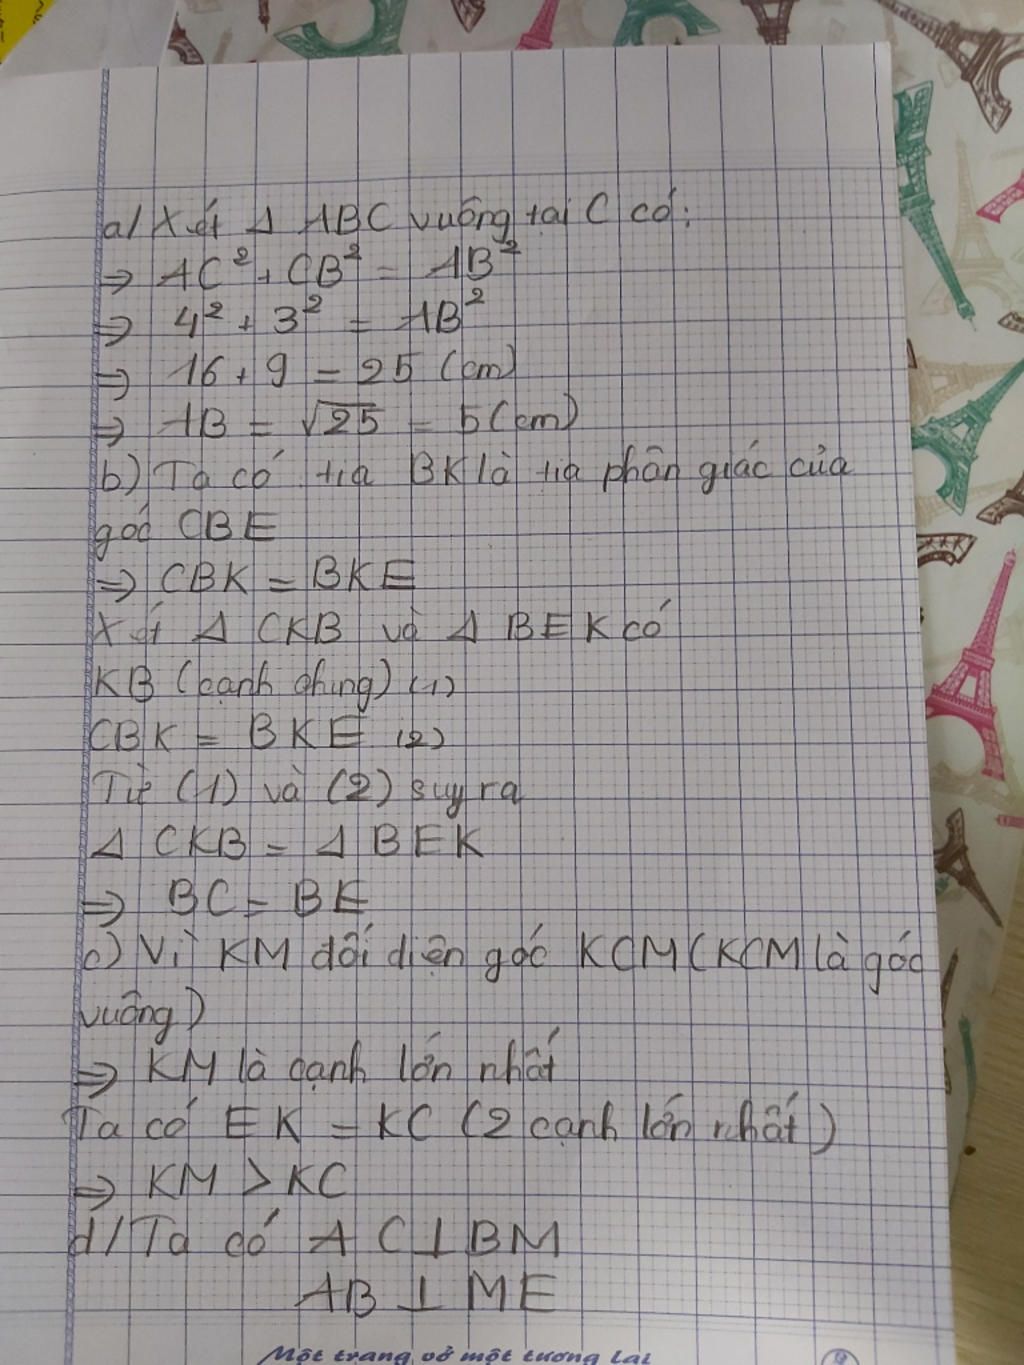 a/ Xét Δ ABC vuông tại C có:
⇒ AC² + CB² = AB²
⇒ 4² + 3² = AB²
⇒ 16 + 9 = 25 (cm)
⇒ AB = √25 = 5 (cm)
b) Ta có tia BK là tia phân giác của
góc CBE
⇒ CBK = BKE
Xét Δ CKB và Δ BEK có
KB (cạnh chung) (1)
CBK = BKE (2)
Từ (1) và (2) suy ra
Δ CKB = Δ BEK
⇒ BC = BE
c) Vì KM đối diện góc KCM (KCM là góc
vuông)
⇒ KM là cạnh lớn nhất
Ta có EK = KC (2 cạnh lớn nhất)
⇒ KM > KC
d/ Ta có AC ⊥ BM
AB ⊥ ME
Một trang vở một tương lai